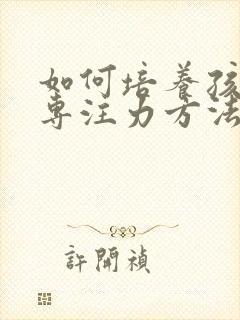 如何培养孩
专注力方法
許開禎